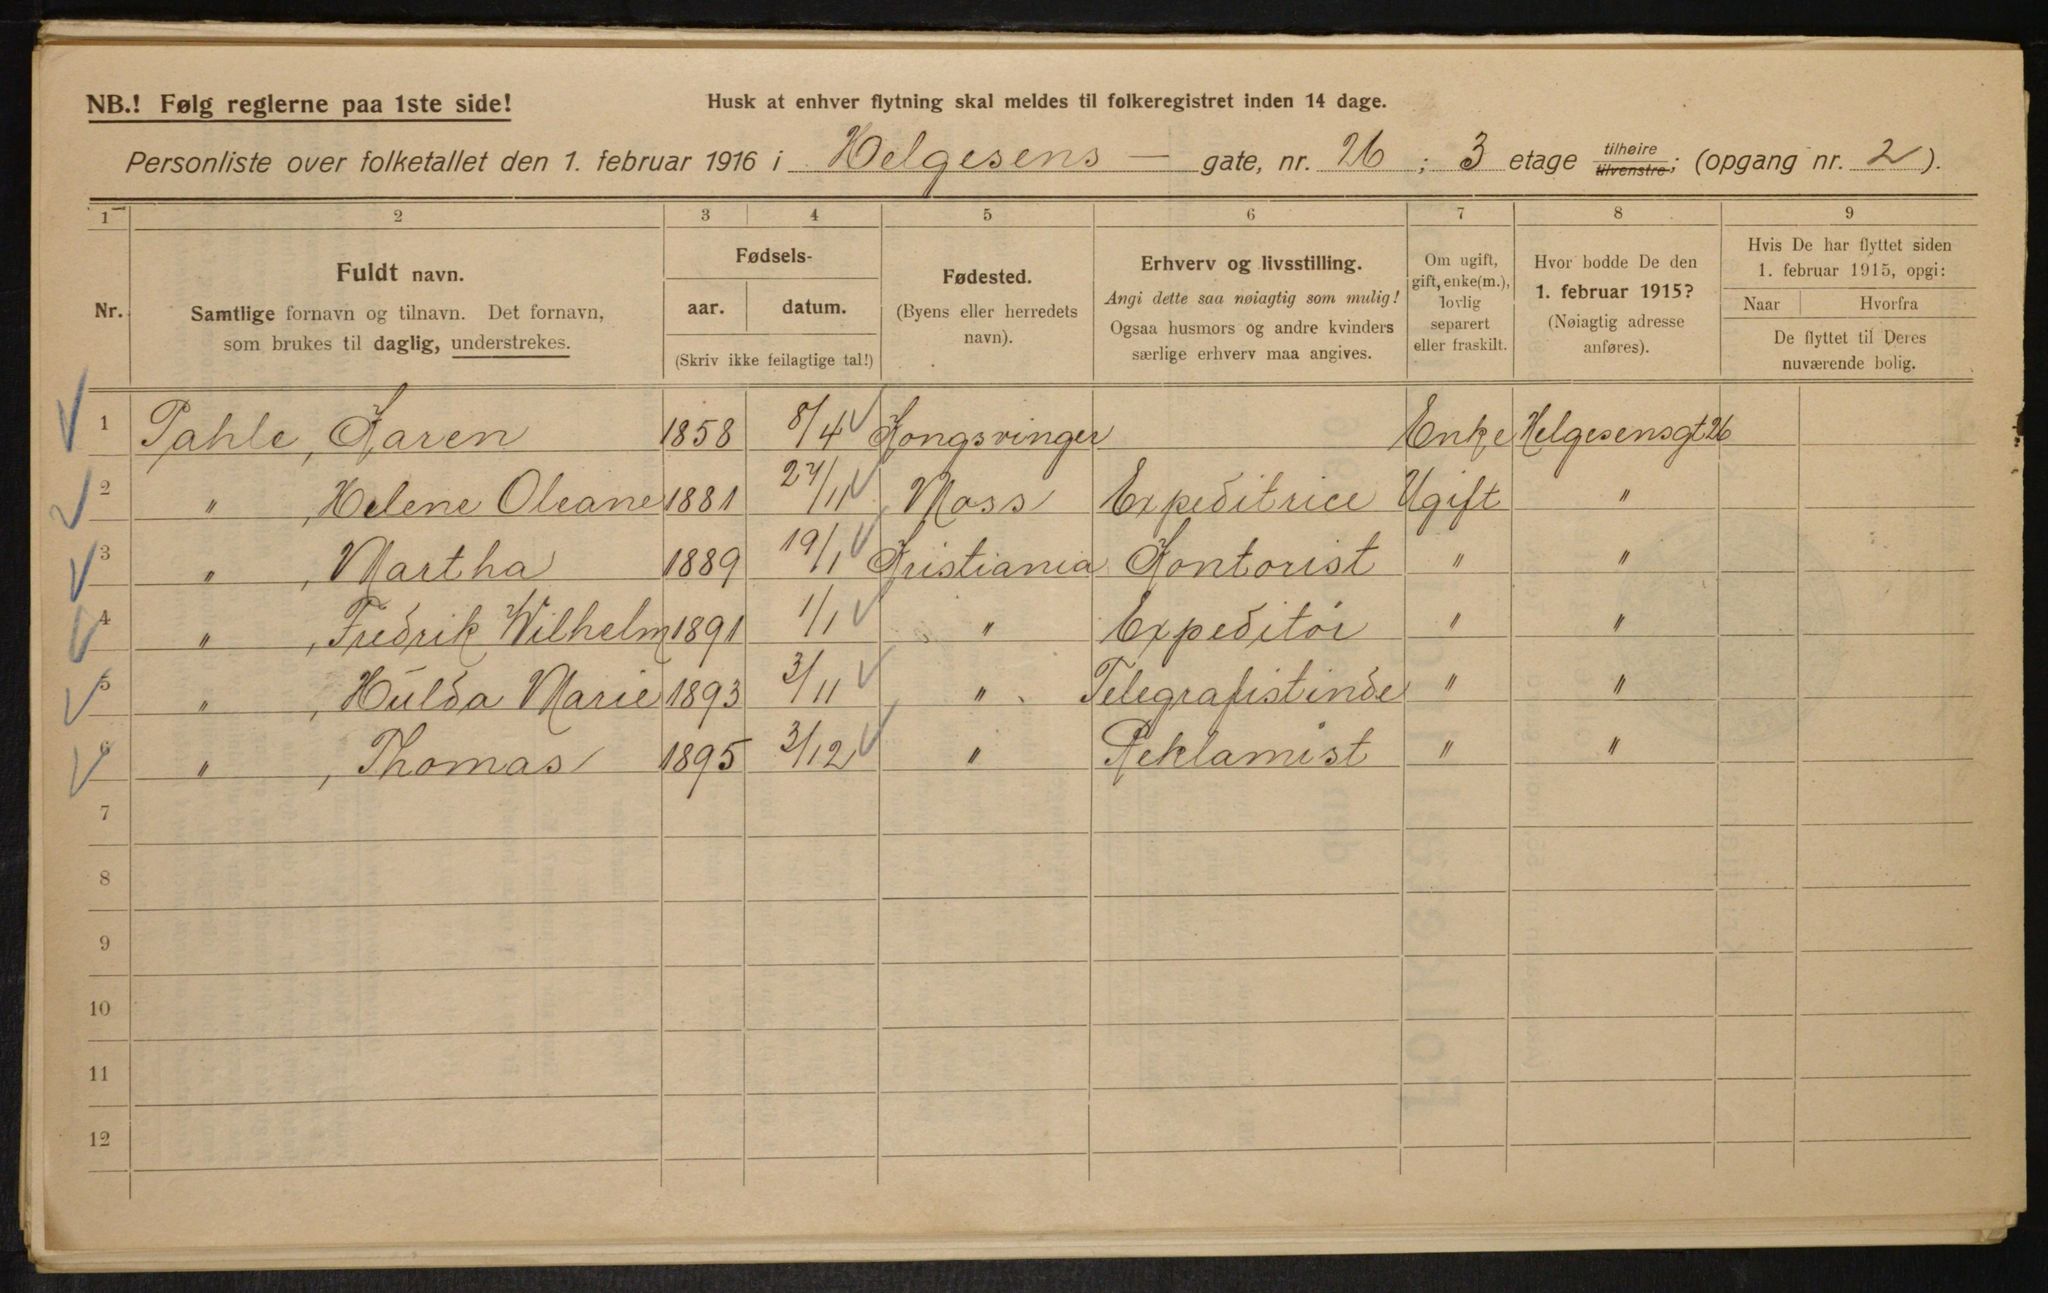 NB.! Følg reglerne paa 1ste side!
Husk at enhver flytning skal meldes til folkeregistret inden 14 dage.
Personliste over folketallet den 1. februar 1916 i Helgesens — gate, nr. 26 ; 3 etage tilhøire tilvenstre; (opgang nr. 2).
1 2 3 4 5 6 7 8 9
Nr.
Fuldt navn.
Samtlige fornavn og tilnavn. Det fornavn,
som brukes til daglig, understrekes.
Fødsels-
aar. datum.
(Skriv ikke feilagtige tal!)
Fødested.
(Byens eller herredets
navn).
Erhverv og livsstilling.
Angi dette saa nøiagtig som mulig!
Ogsaa husmors og andre kvinders
særlige erhverv maa angives.
Om ugift,
gift, enke(m.),
lovlig
separert
eller fraskilt.
Hvor bodde De den
1. februar 1915?
(Nøiagtig adresse
anføres).
Hvis De har flyttet siden
1. februar 1915, opgi:
Naar Hvorfra
De flyttet til Deres
nuværende bolig.
1 Pahle, Karen 1858 8/4 Kongsvinger Enke Helgesensgt 26
2 " , Helene Oleane 1881 27/11 Moss Expeditrice Ugift "
3 " , Martha 1889 19/1 Kristiania Kontorist " "
4 " , Fredrik Wilhelm 1891 1/1 " Expeditör " "
5 " , Hulda Marie 1893 3/11 " Telegrafistinde " "
6 " , Thomas 1895 3/12 " Reklamist " "
7
8
9
10
11
12